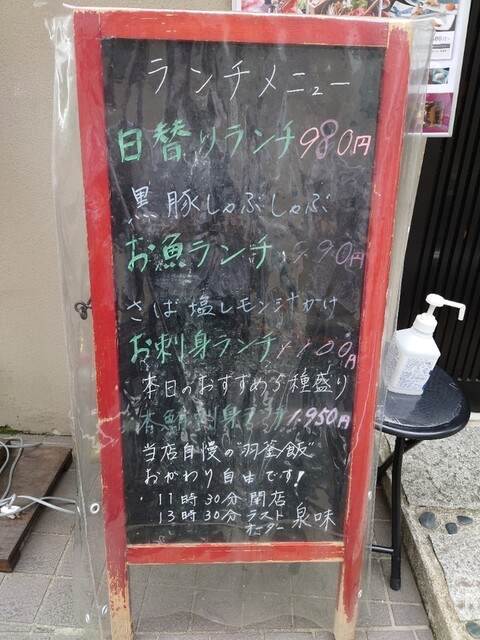 ランチメニュー
日替りランチ 980円
黒豚しゃぶしゃぶ
お魚ランチ 990円
さば塩レモン汁かけ
お刺身ランチ 1100円
本日のおすすめ5種盛り
本鮪刺身ランチ 1,950円
当店自慢の"羽釜飯"
おかわり自由です!
11時30分 開店
13時30分 ラストオーダー 泉味